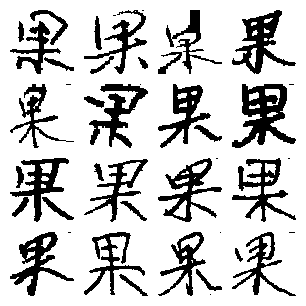 果果果果
果果果果
果果果果
果果果果